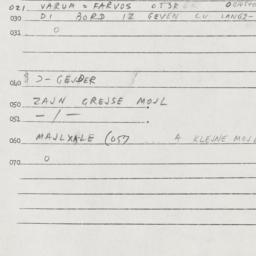 021. VARUM = FARVOS OTSR
030 DI BORD IZ GEVEN CU LANGZ-
031 0
040 § Ɔ- GEJDER
050 ZAJN GREJSE MOJL
052 — / — .
060 MAJLXALE (057 A KLEJNE MOJL
070 0